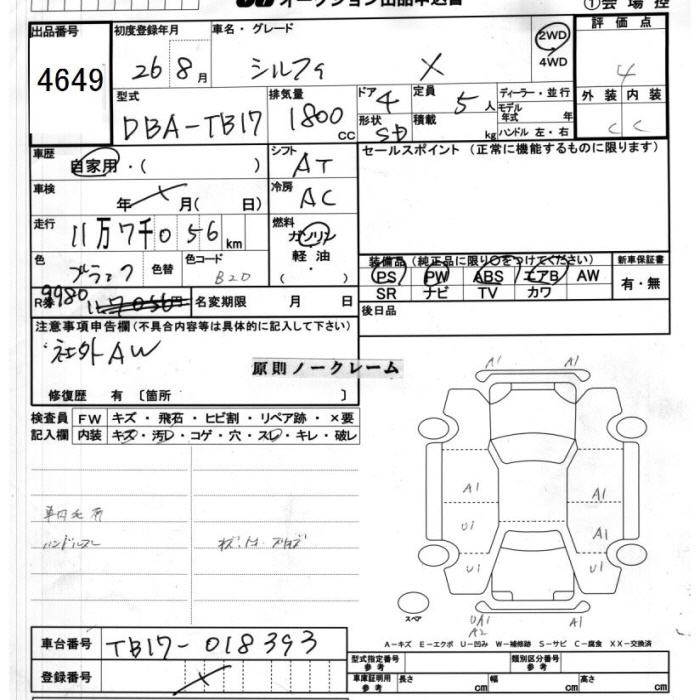 オークション出品申込書 ①会場控
出品番号 初度登録年月 車名・グレード 評価点
4649 26年 8月 シルフィ X 2WD 4WD 4
型式 排気量 ドア 定員 ディーラー・並行 外装 内装
DBA-TB17 1800cc 4 5人 モデル年式 年 C C
形状 SD 積載 kg ハンドル 左・右
車歴 シフト セールスポイント (正常に機能するものに限ります)
自家用・( ) AT
車検 冷房
年 月( 日) AC
走行 燃料
11万7千056km ガソリン
軽油
( ・ )
色 色替 色コード
ブラック B20
装備品 (純正品に限り○をつけてください) 新車保証書
PS PW ABS エアB AW 有・無
SR ナビ TV カワ
R券 9980 117056円 名変期限 月 日 後日品
注意事項申告欄(不具合内容等は具体的に記入して下さい)
社外AW
原則ノークレーム
修復歴 有 〔箇所 〕
検査員 FW キズ・飛石・ヒビ割・リペア跡・×要
記入欄 内装 キズ・汚レ・コゲ・穴・スレ・キレ・破レ
ハンドルスレ
A1 A1
A1 A1
U1 A1
U1 A1
スペア UA1 A1
A2
車台番号 TB17-018393
A-キズ E-エクボ U-凹み W-補修跡 S-サビ C-腐食 XX-交換済
登録番号 型式指定番号 参考 類別区分番号 参考
車庫証明用 参考 長さ cm 幅 cm 高さ cm